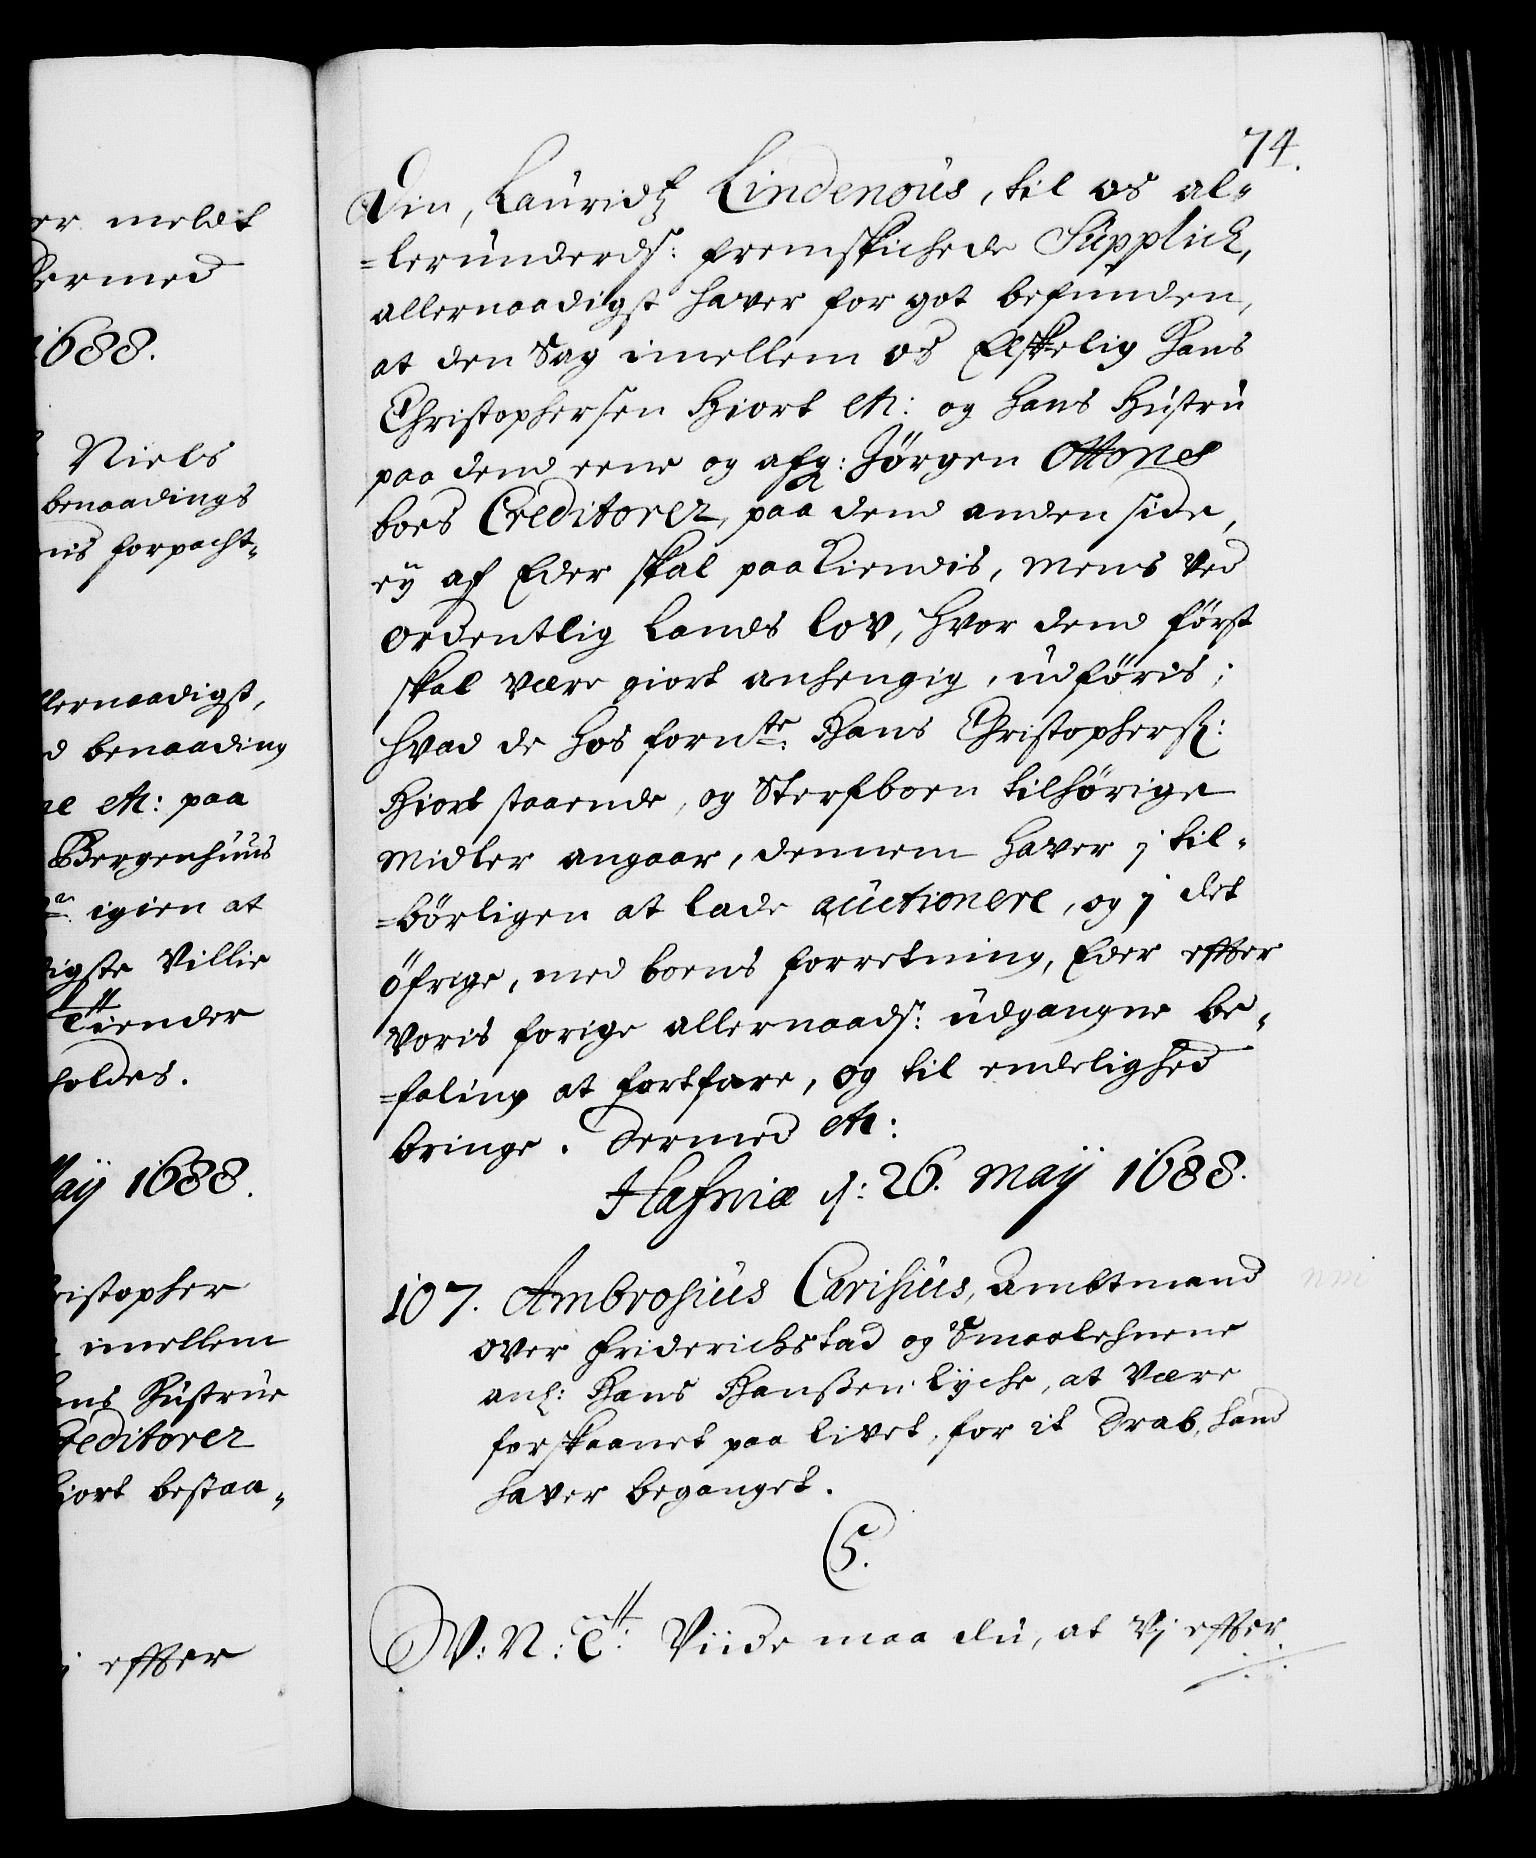 er meldt
Dermed
1688.
Niels
benaadings
nis forpacht-
llernaadigst,
d benaading
ne etc: paa
Bergenhuus
igien at
digste Villie
Tiender
holdes.
Maij 1688.
ristopher
imellem
ans Hustrue
Creditorer
Hiort bestaa-
j effter
74.
Din, Lauridtz Lindenous, til os al-
=lerunderds: fremskichede Supplich,
allernaadigst haver for got befunden,
at den Sag imellem os Elskelig Hans
Christophersen Hiort etc: og hans Hustru
paa dend eene og afg: Jörgen Ottones
boes Creditorer, paa dend anden side,
eÿ af Eder skal paakiendis, mens ved
ordentlig Lands lov, hvor dend först
skal være giort anhengig, udföris;
hvad de hos fornte Hans Christophers:
Hiort staaende, og Sterfboen tilhörige
Midler angaar, dennem haver j til-
=börligen at lade auctionere, og j det
öfrige, med boens forretning, Eder effter
voris forige allernaads: udgangne be-
=faling at fortfare, og til endelighed
bringe. Dermed etc:
Hafniæ d: 26. Maij 1688.
107. Ambrosius Carisius, Ambtmand
over Friderichstad og Smaalehnene
anl: Hans Hanßen Lÿche, at være
forskaanet paa livet, for it Drab, hand
haver beganget.
C5.
W: N: Ctt: Viide maa du, at Vj effter